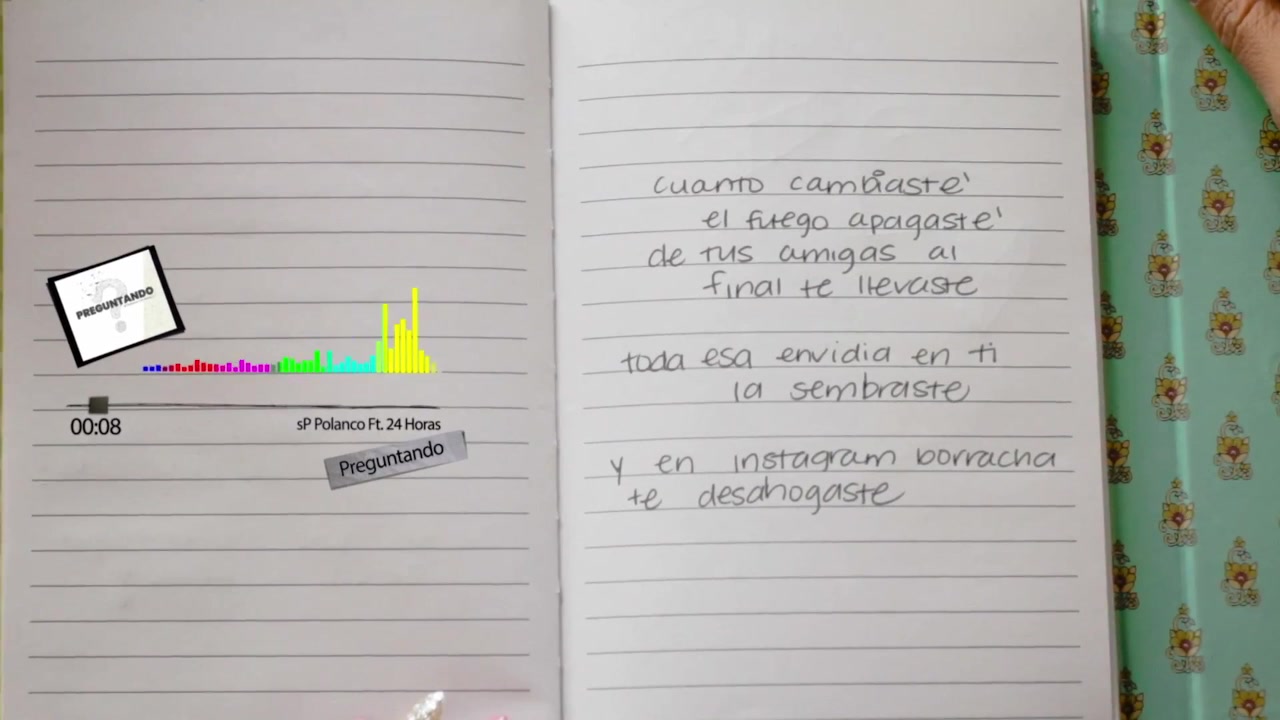 PREGUNTANDO
00:08
sP Polanco Ft. 24 Horas
Preguntando
cuanto cambiaste'
el fuego apagaste'
de tus amigas al
final te llevaste
toda esa envidia en ti
la sembraste
y en instagram borracha
te desahogaste